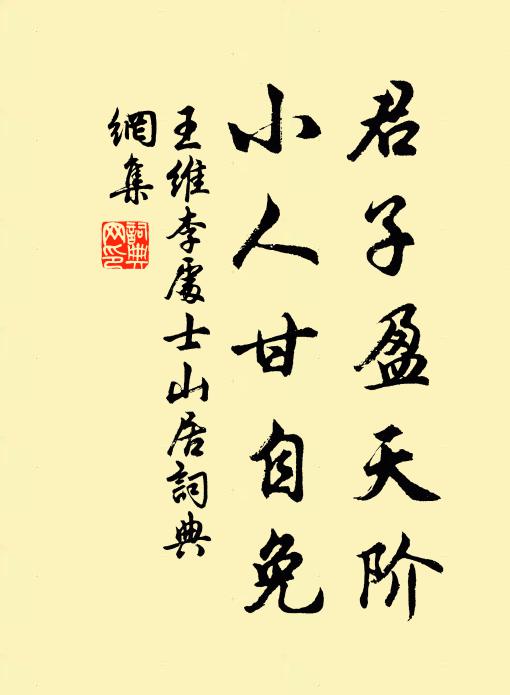 君子盈天阶
小人甘自免
王维李處士山居詞典
網集
詞典网印